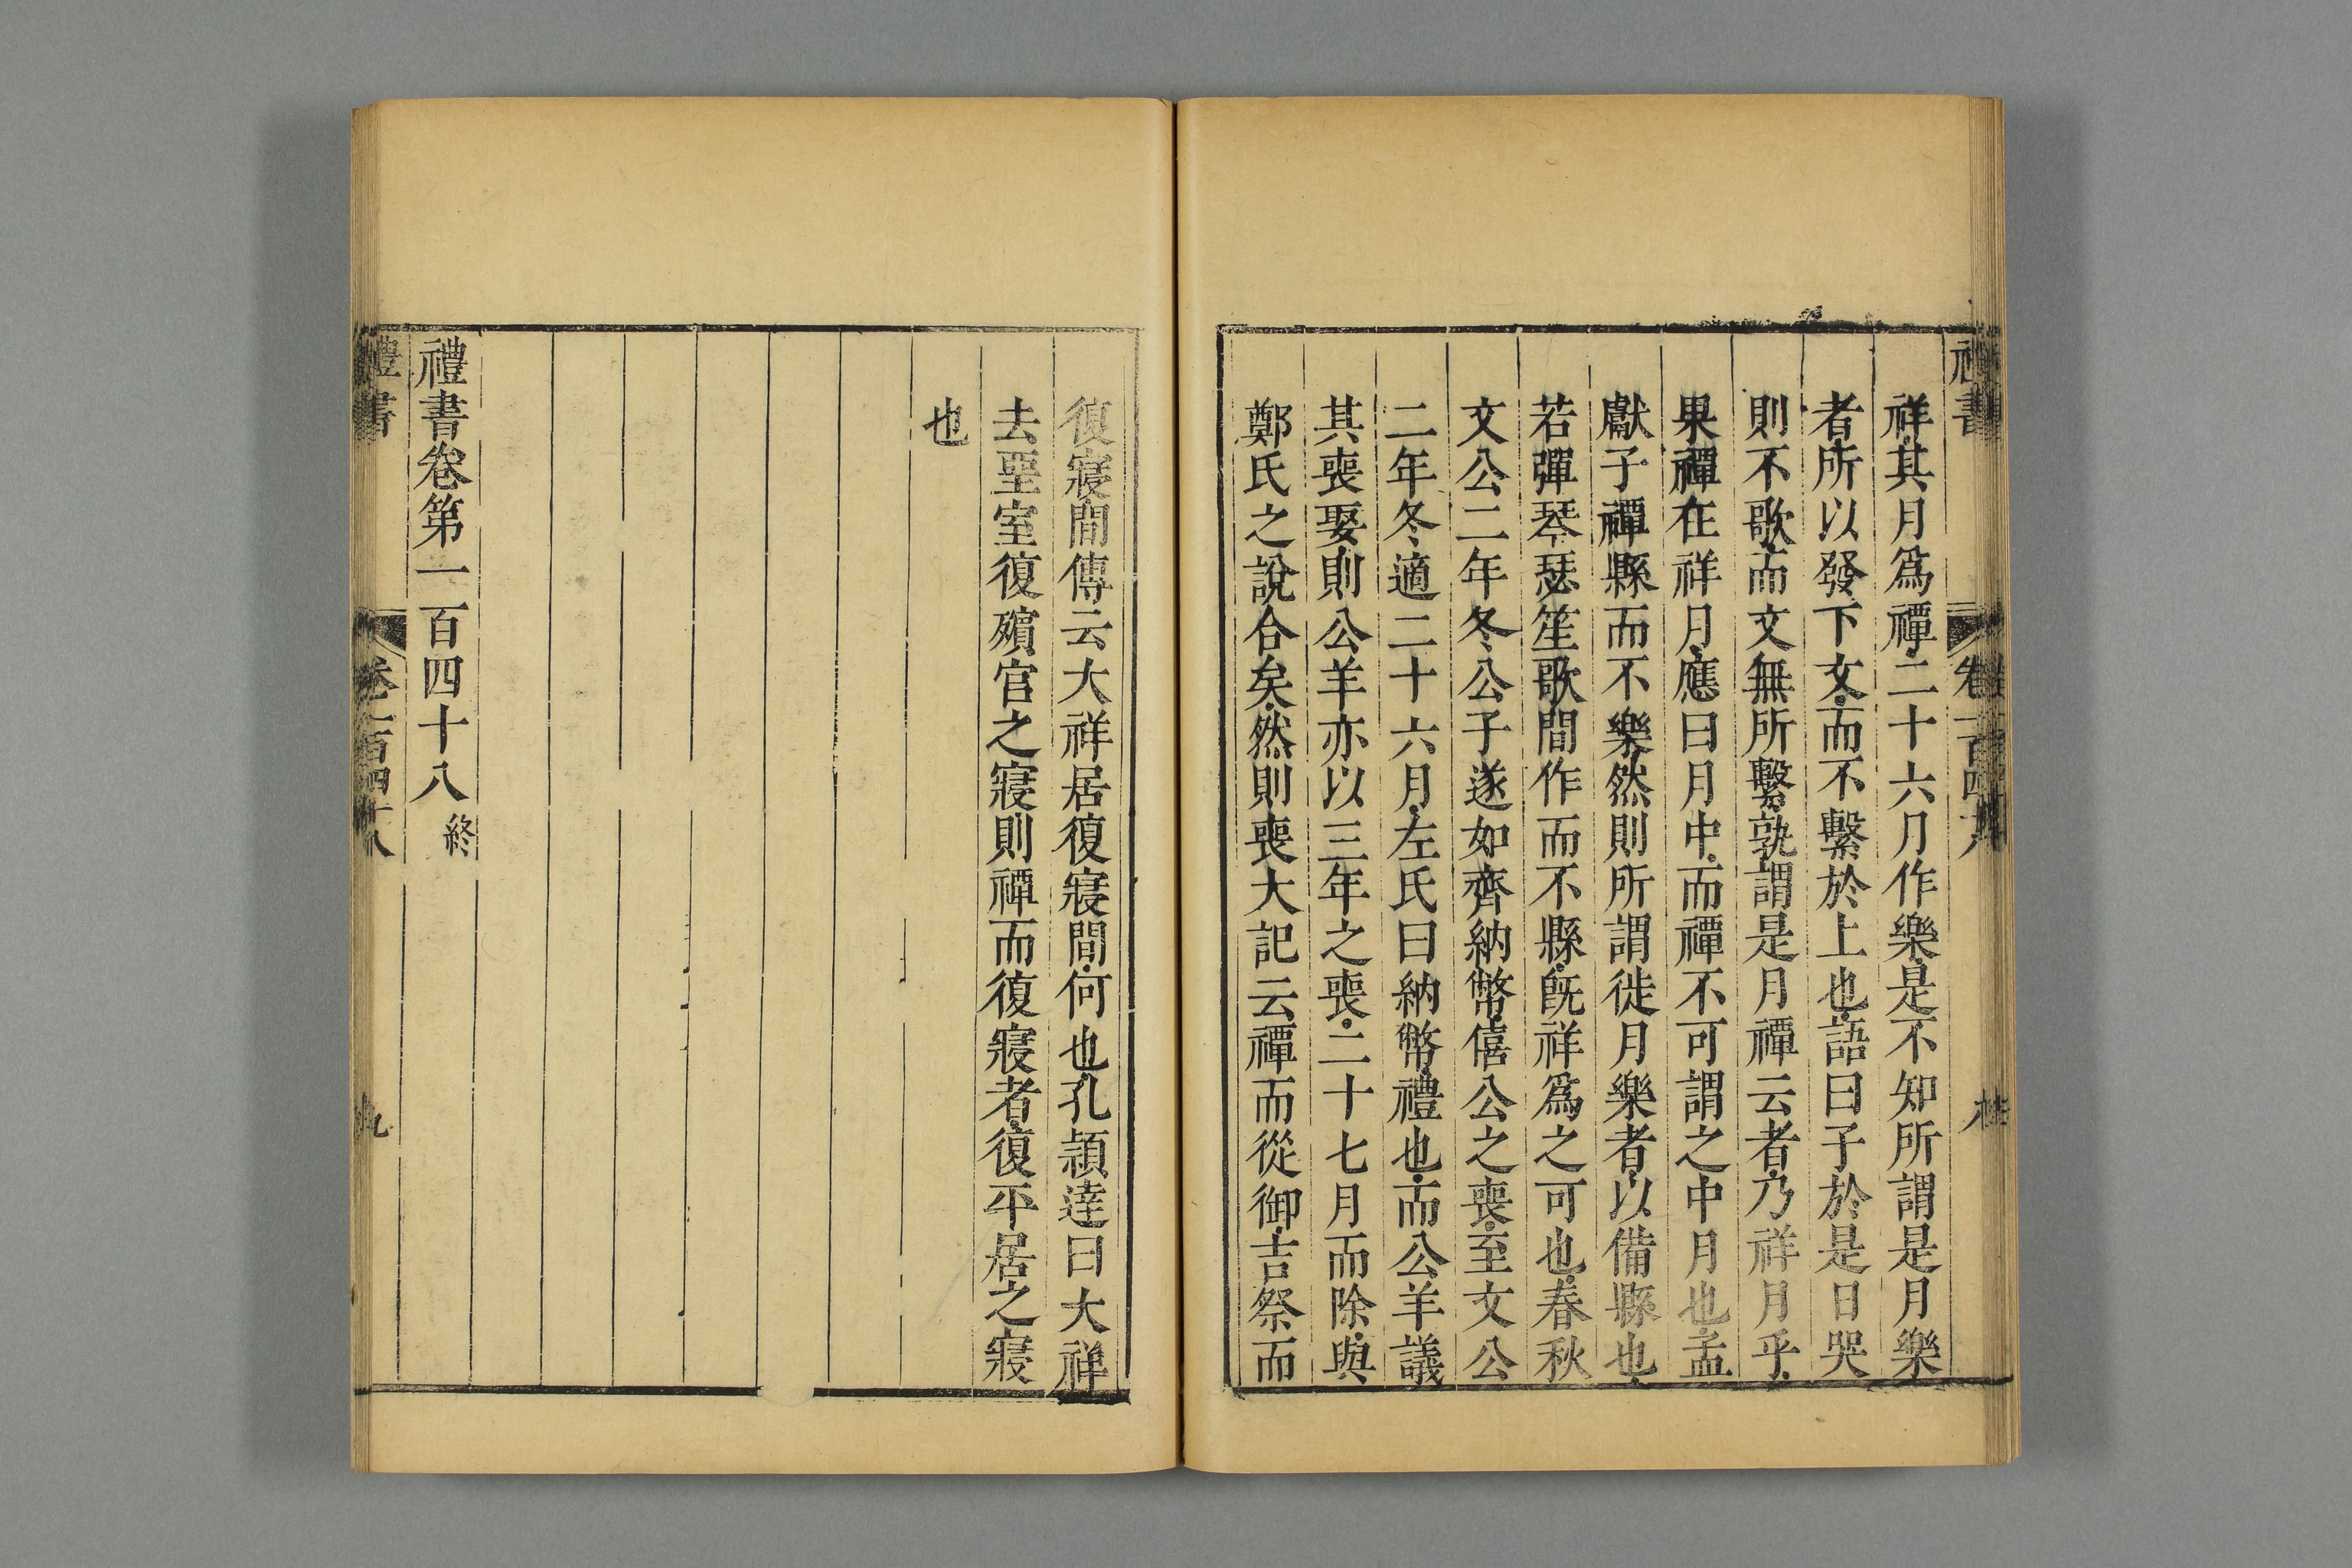 禮書
卷一百四十八
祥其月爲禫二十六月作樂是不知所謂是月樂
者所以發下文而不繫於上也語曰子於是日哭
則不歌而文無所繫孰謂是月禫云者乃祥月乎
果禫在祥月應曰月中而禫不可謂之中月也孟
獻子禫縣而不樂然則所謂徙月樂者以備縣也
若彈琴瑟笙歌間作而不縣旣祥爲之可也春秋
文公二年冬公子遂如齊納幣僖公之喪至文公
二年冬適二十六月左氏曰納幣禮也而公羊議
其喪娶則公羊亦以三年之喪二十七月而除與
鄭氏之說合矣然則喪大記云禫而從御吉祭而
復寢間傳云大祥居復寢間何也孔頴達曰大祥
去堊室復殯宫之寢則禫而復寢者復平居之寢
也
禮書卷第一百四十八 終
禮書
卷一百四十八
九